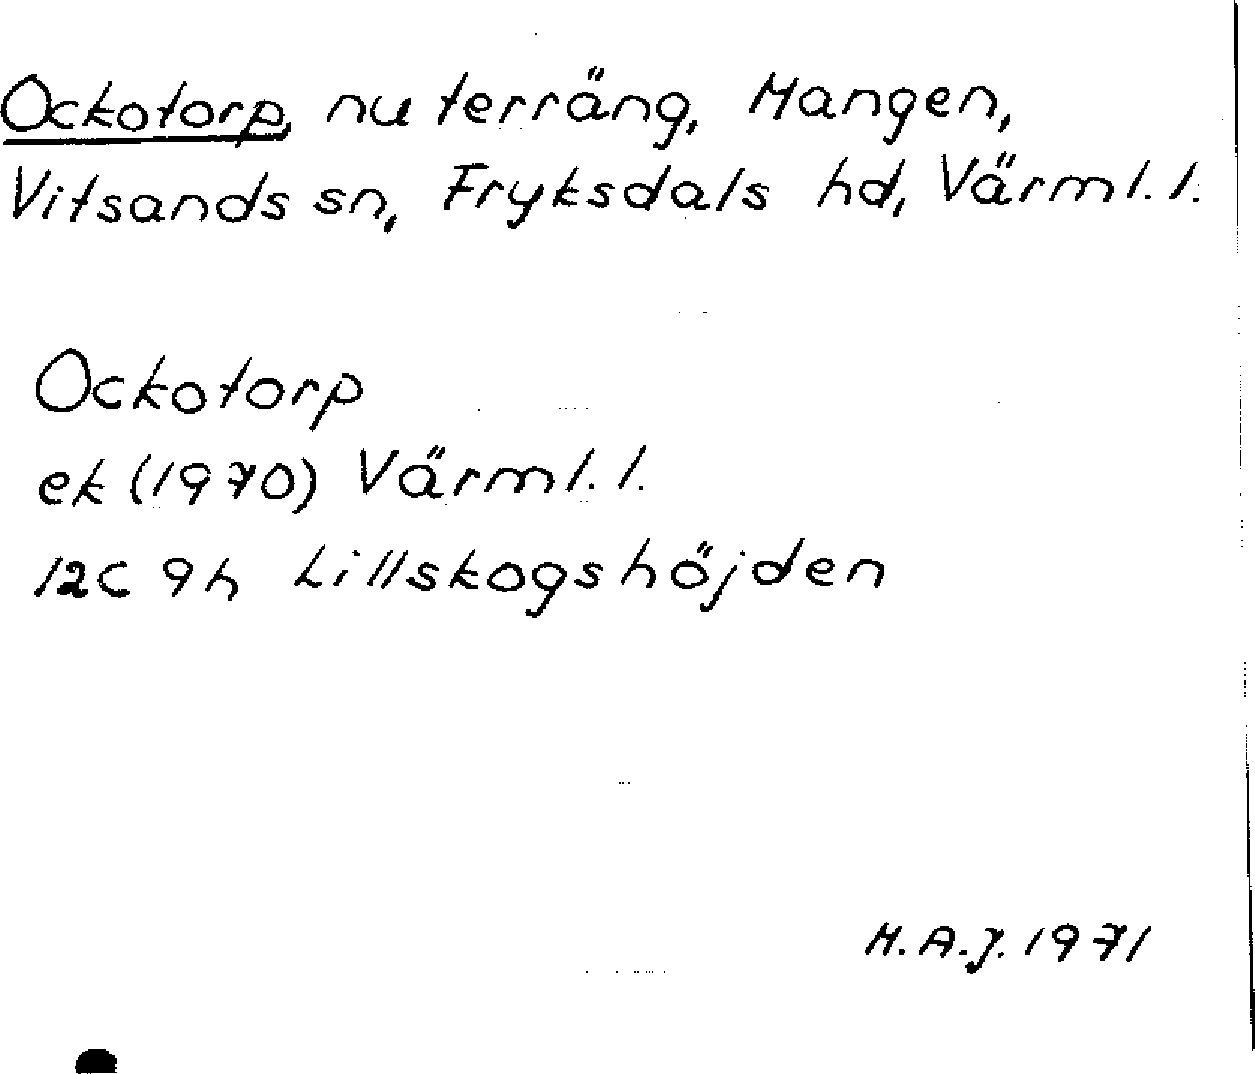 Ockotorp, nu terräng, Mangen,
Vitsands sn, Fryksdals hd, Värml. l.
Ockotorp
ek (1970) Värml. l.
12C 9h Lillskogshöjden
M. A. J. 1971